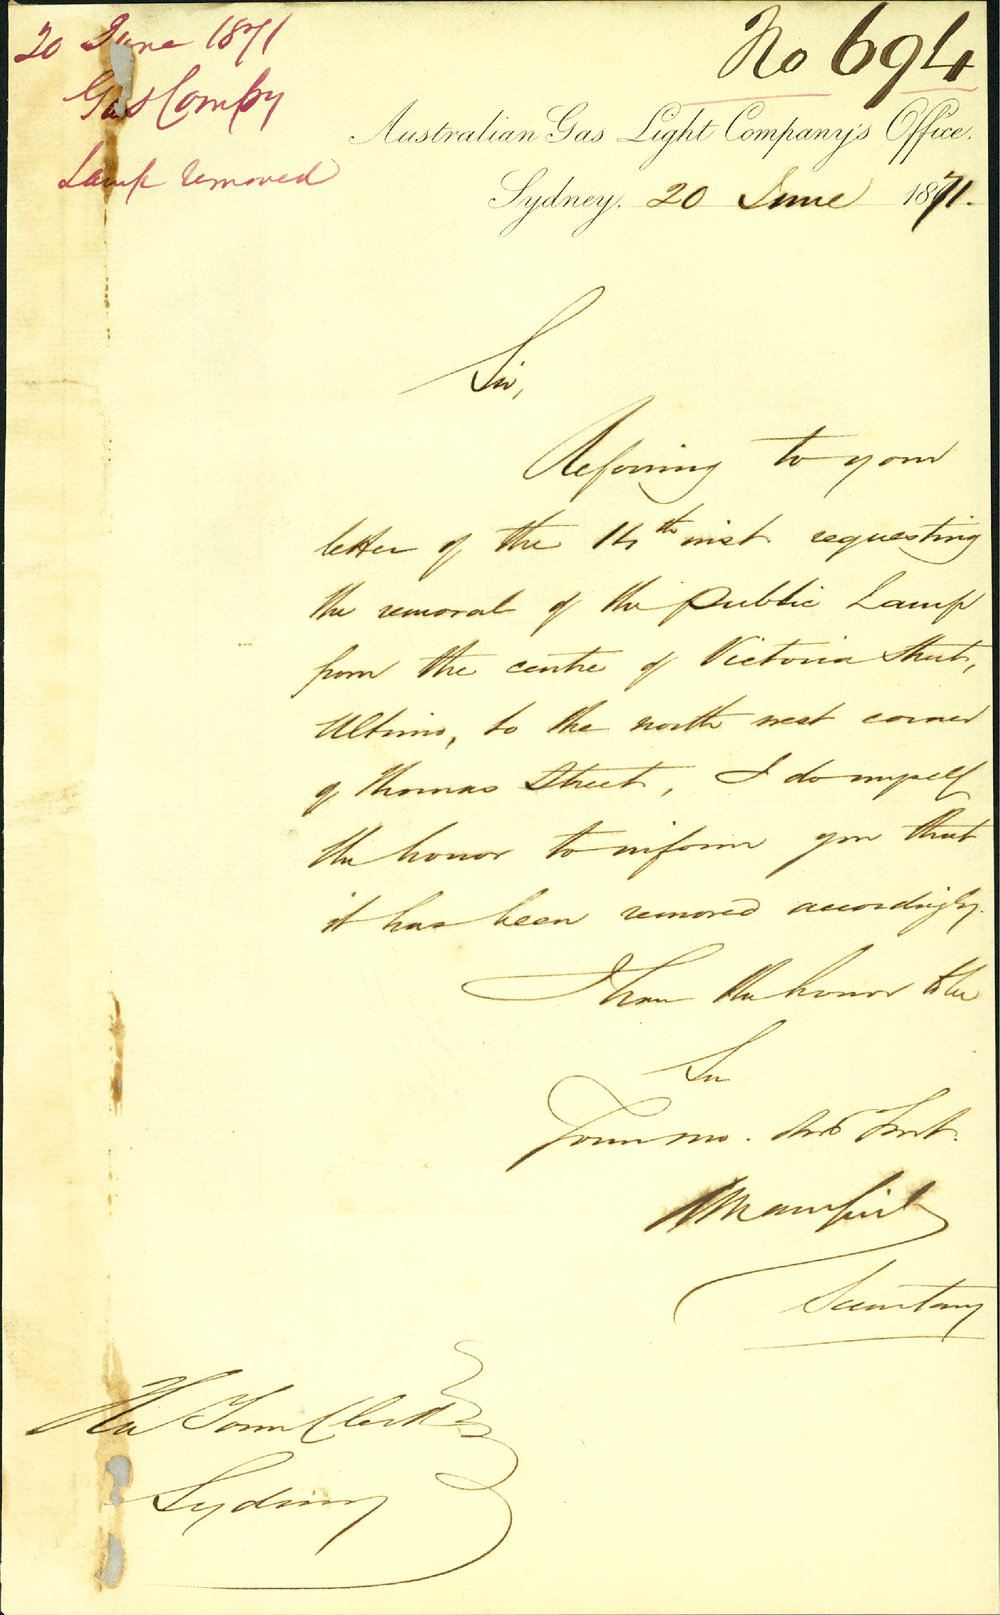 20 June 1871
Gas Compy
Lamp removed
No 694
Australian Gas Light Company's Office.
Sydney. 20 June 1871.
Sir,
Referring to your
letter of the 14th inst requesting
the removal of the public Lamp
from the centre of Victoria Street,
Ultimo, to the north west corner
of Thomas Street, I do myself
the honor to inform you that
it has been removed accordingly.
I have the honor to be
Sir
Your mo. Obt Servt.
Secretary
The Town Clerk
Sydney